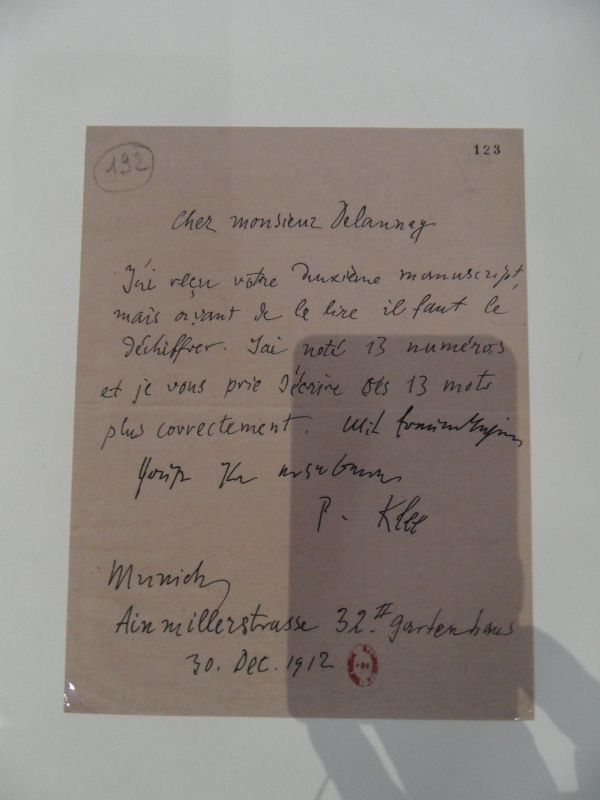 123
192
Cher monsieur Delaunay
J'ai reçu votre deuxième manuscript,
mais avant de le lire il faut le
déchiffrer. J'ai noté 13 numéros
et je vous prie d'écrire ces 13 mots
plus correctement. Mit
Gruss Ihr
P. Klee
Munich
Ainmillerstrasse 32. II gartenhaus
30. Dec. 1912